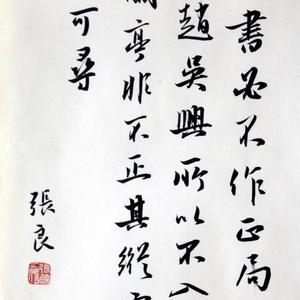 書必不作正局
趙吳興所以不入
亭非不正其縱
可尋
張良